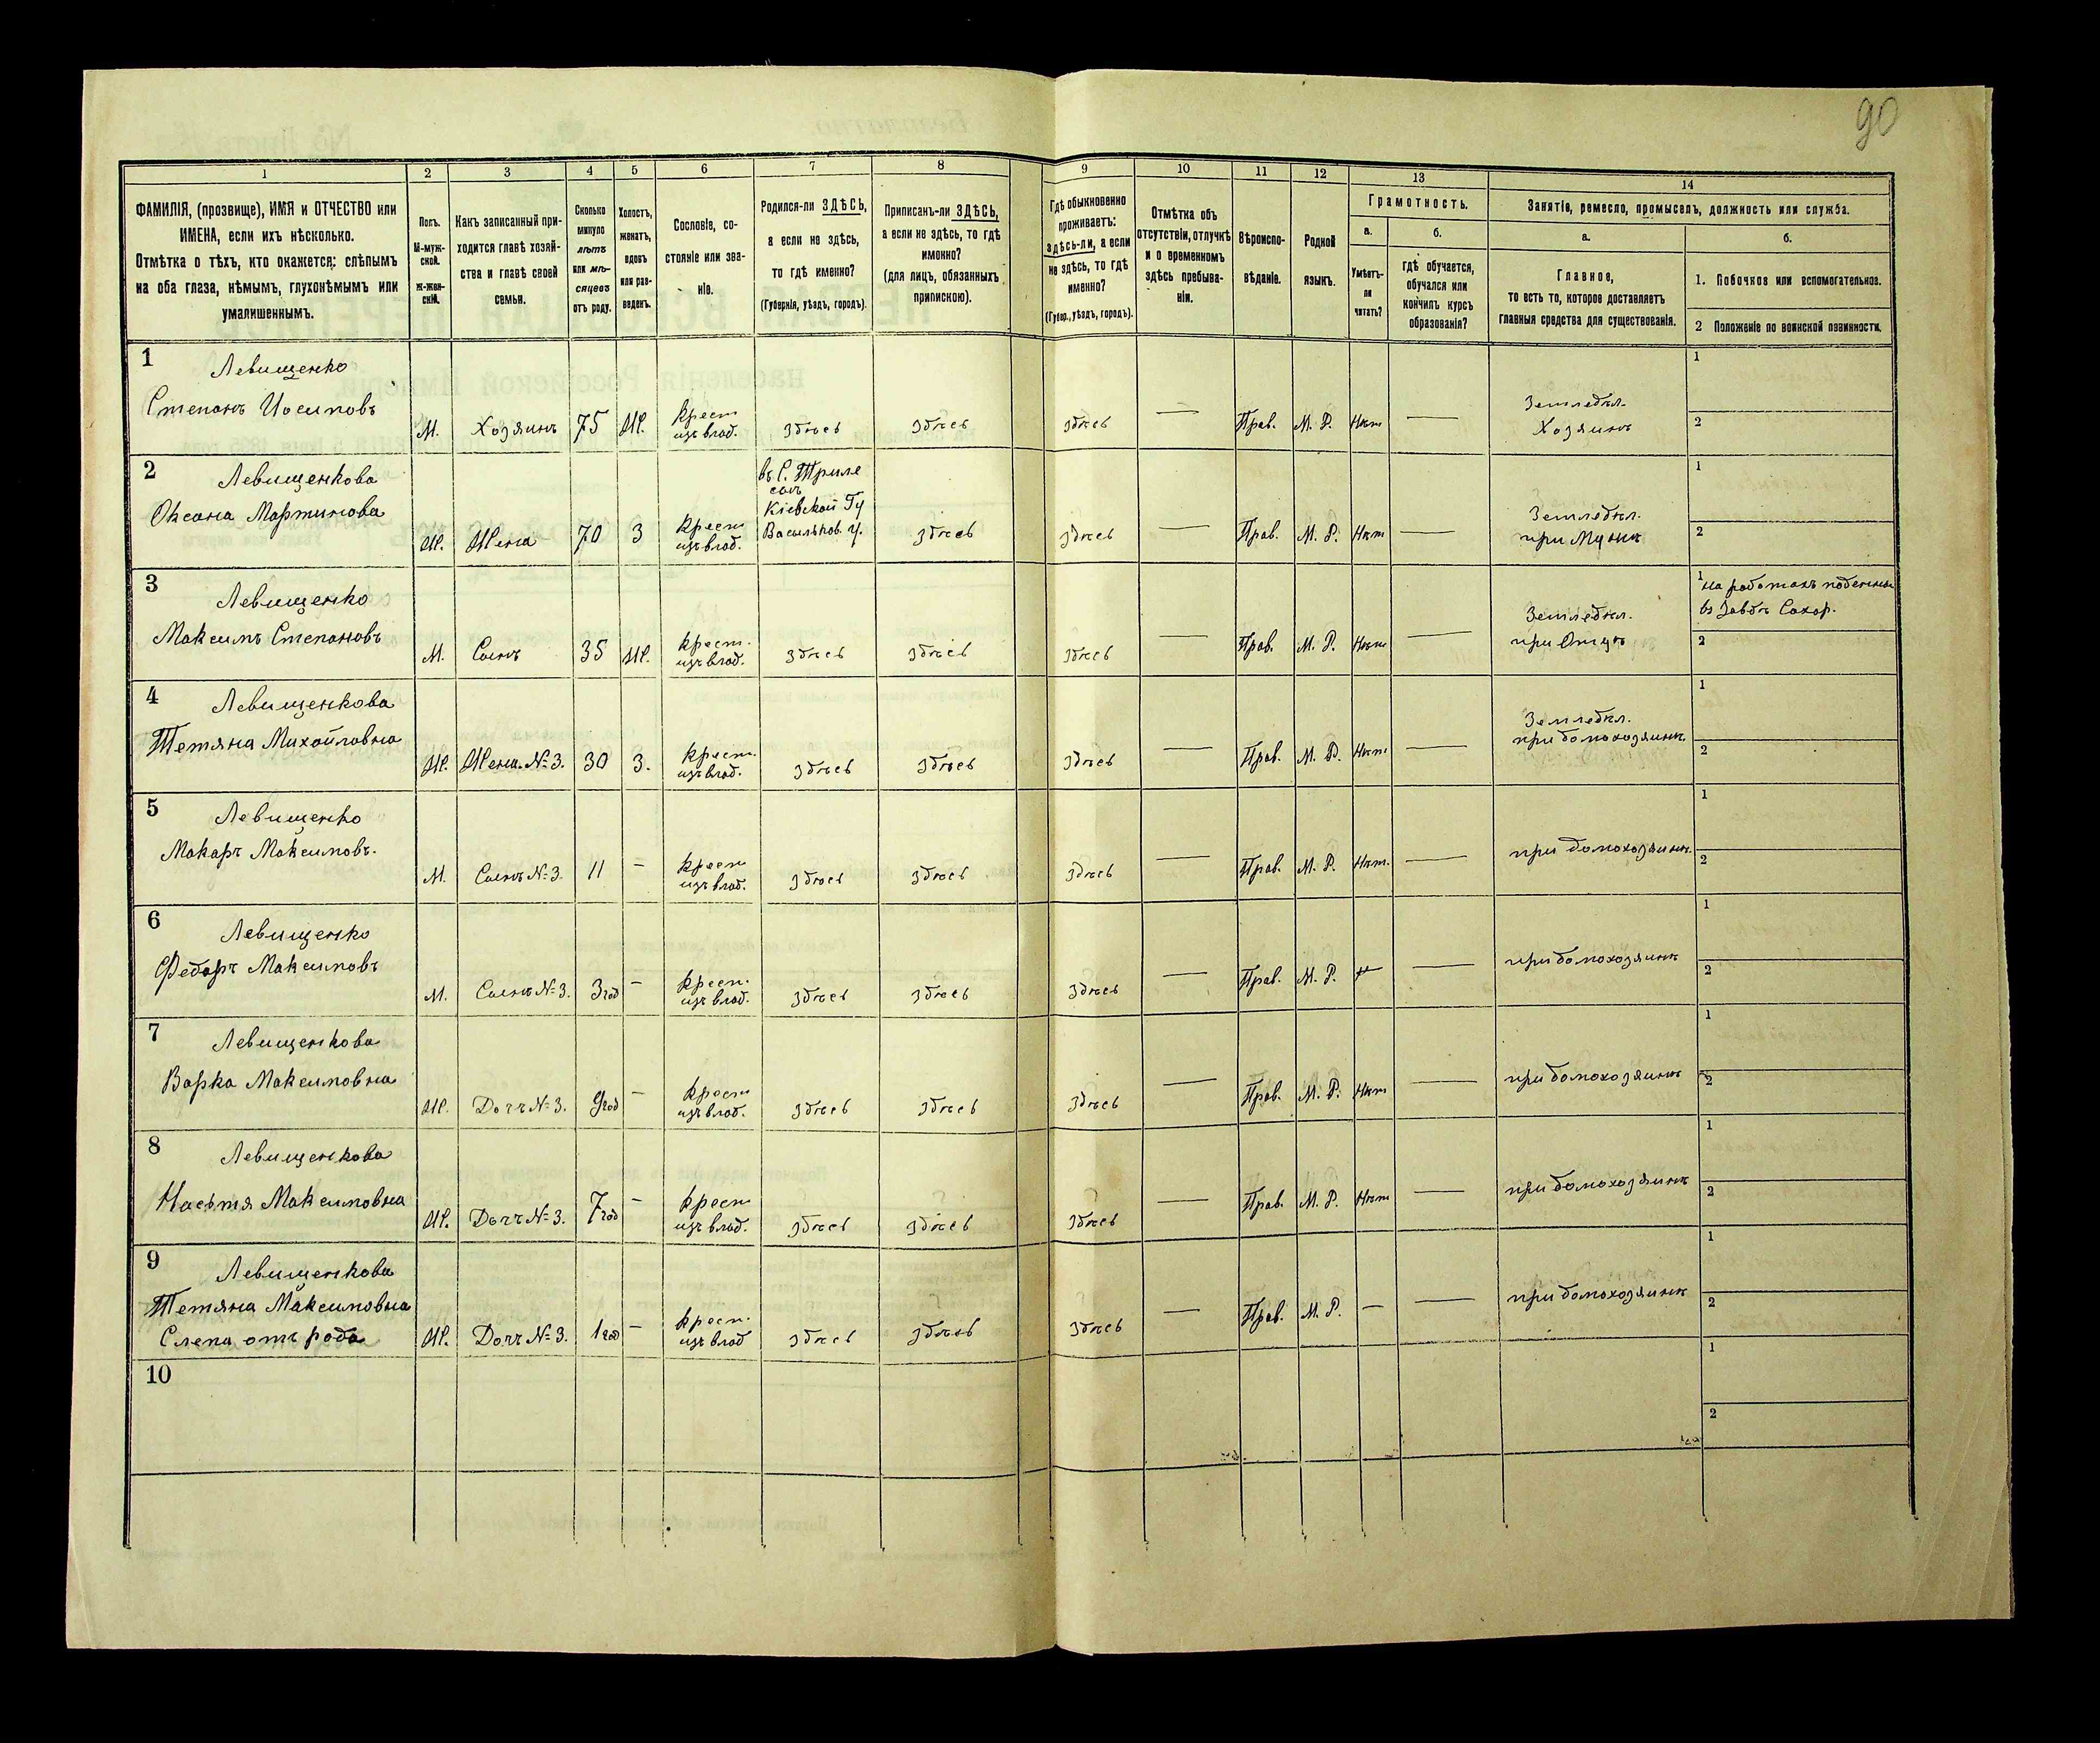 90
1 2 3 4 5 6 7 8 9 10 11 12 13 14
ФАМИЛІЯ, (прозвище), ИМЯ и ОТЧЕСТВО или
ИМЕНА, если ихъ нѣсколько.
Отмѣтка о тѣхъ, кто окажется: слѣпымъ
на оба глаза, нѣмымъ, глухонѣмымъ или
умалишеннымъ.
Полъ.
М-муж-
ской.
ж-жен-
скій.
Какъ записанный при-
ходится главѣ хозяй-
ства и главѣ своей
семьи.
Сколько
минуло
лѣтъ
или мѣ-
сяцевъ
отъ роду.
Холостъ,
женатъ,
вдовъ
или раз-
веденъ.
Сословіе, со-
стояніе или зва-
ніе.
Родился-ли ЗДѢСЬ,
а если не здѣсь,
то гдѣ именно?
(Губернія, уѣздъ, городъ).
Приписанъ-ли ЗДѢСЬ,
а если не здѣсь, то гдѣ
именно?
(для лицъ, обязанныхъ
припискою).
Гдѣ обыкновенно
проживаетъ:
здѣсь-ли, а если
не здѣсь, то гдѣ
именно?
(Губер., уѣздъ, городъ).
Отмѣтка объ
отсутствіи, отлучкѣ
и о временномъ
здѣсь пребыва-
ніи.
Вѣроиспо-
вѣданіе.
Родной
языкъ.
Грамотность.
а.
Умѣетъ-
ли
читать?
б.
гдѣ обучается,
обучался или
кончилъ курсъ
образованія?
Занятіе, ремесло, промыселъ, должность или служба.
а.
Главное,
то есть то, которое доставляетъ
главныя средства для существованія.
б.
1. Побочное или вспомогательное.
2 Положеніе по воинской повинности.
1
Левищенко
Степанъ Иосиповъ
М.
Хозяинъ
75
Ж.
Крест
изъ влад.
здѣсь
здѣсь
здѣсь
—
Прав.
М. Р.
Нѣт
—
Земледѣл.
Хозяинъ
1
2
2
Левищенкова
Оксана Мартинова
Ж.
Жена
70
З
Крест
изъ влад.
въ С. Триле
сахъ
Кіевской Гу
Васильков. у.
здѣсь
здѣсь
—
Прав.
М. Р.
Нѣт
—
Земледѣл.
при Мужѣ
1
2
3
Левищенко
Максимъ Степановъ
М.
Сынъ
35
Ж.
Крест.
изъ влад.
здѣсь
здѣсь
здѣсь
—
Прав.
М. Р.
Нѣт
—
Земледѣл.
при Отцѣ
1 на работахъ поденных
въ Завдѣ Сахар.
2
4
Левищенкова
Тетяна Михайловна
Ж.
Жена №3.
30
З.
Крест.
изъ влад.
здѣсь
здѣсь
здѣсь
—
Прав.
М. Р.
Нѣт
—
Земледѣл.
при домохозяинѣ
1
2
5
Левищенко
Макаръ Максимовъ.
М.
Сынъ №3.
11
—
Крест
изъ влад.
здѣсь
здѣсь
здѣсь
—
Прав.
М. Р.
Нѣт.
—
при домохозяинѣ.
1
2
6
Левищенко
Федоръ Максимовъ
М.
Сынъ №3.
3 год
—
Крест.
изъ влад.
здѣсь
здѣсь
здѣсь
—
Прав.
М. Р.
—
при домохозяинѣ
1
2
7
Левищенкова
Варка Максимовна
Ж.
Дочъ №3.
9 год
—
Крест
изъ влад.
здѣсь
здѣсь
здѣсь
—
Прав.
М. Р.
Нѣт
—
при домохозяинѣ
1
2
8
Левищенкова
Настя Максимовна
Ж.
Дочъ №3.
7 год
—
Крест
изъ влад.
здѣсь
здѣсь
здѣсь
—
Прав.
М. Р.
Нѣт
—
при домохозяинѣ
1
2
9
Левищенкова
Тетяна Максимовна
Слепа отъ рода
Ж.
Дочъ №3.
1 год
—
Крест.
изъ влад
здѣсь
здѣсь
здѣсь
—
Прав.
М. Р.
—
—
при домохозяинѣ
1
2
10
1
2